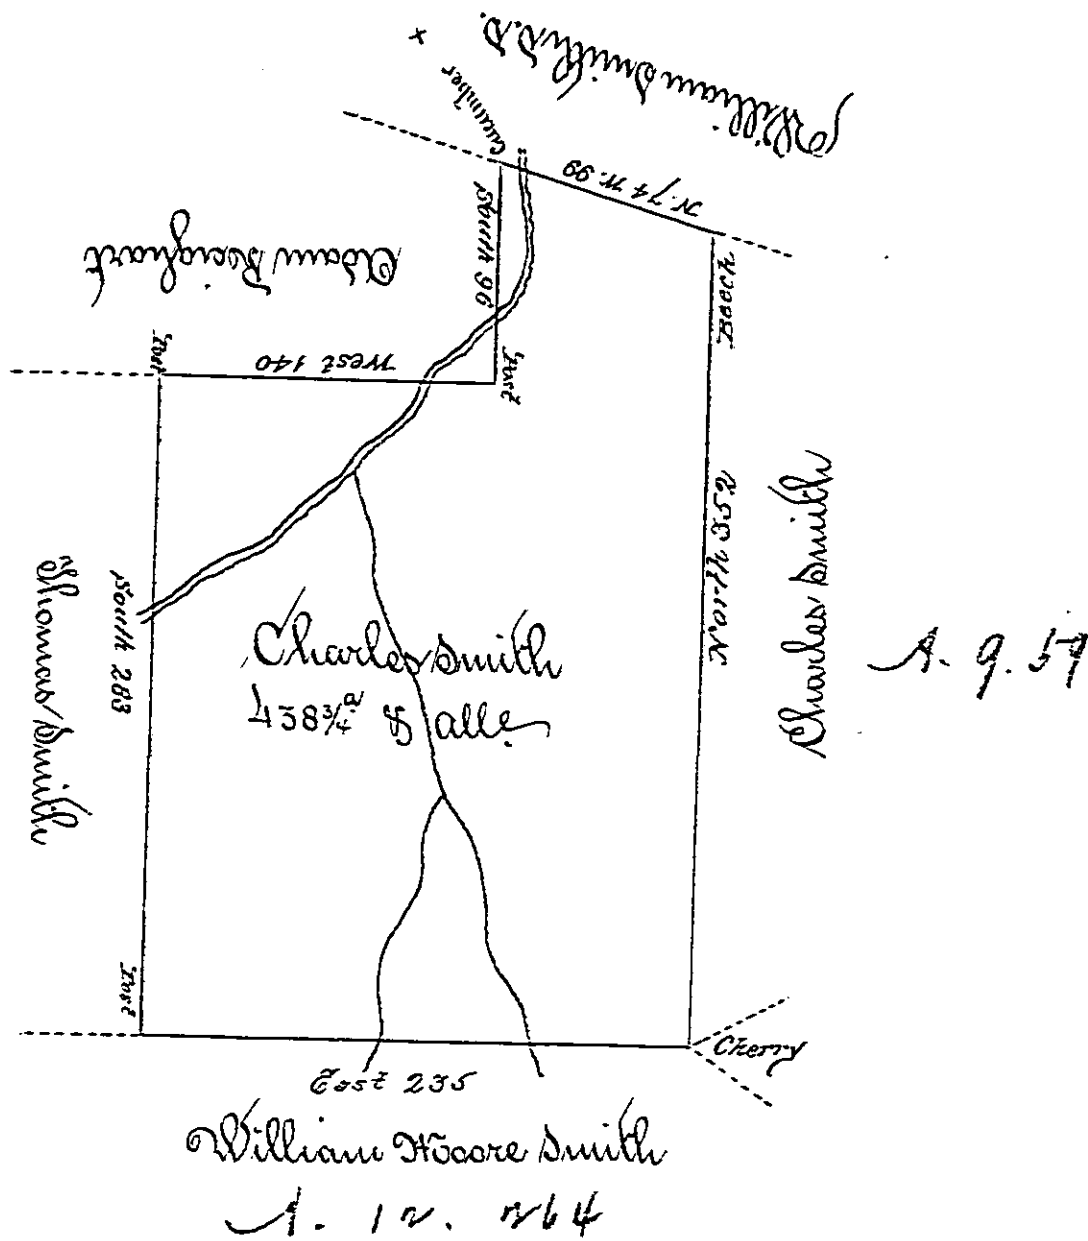 William Smith D.D.
x
Cucumber
N. 74 W. 99
South 96
Adam Boeighart
Beech
Post
West 140
Post
North 352
Charles Smith
A. 9. 59
Thomas Smith
South 283
Charles Smith
438¾ a & alle.
Post
Cherry
East 235
William Moore Smith
A. 12. 264